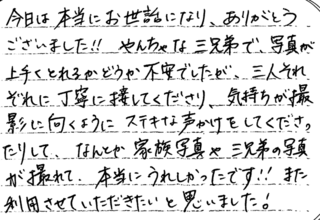 今日は本当にお世話になり、ありがとう
ございました!! やんちゃな三兄弟で、写真が
上手くとれるかどうか不安でしたが、三人それ
ぞれに丁寧に接してくださり、気持ちが撮
影に向くように ステキな声かけをしてくださっ
たりして、なんとか 家族写真や 三兄弟の写真
が撮れて、本当にうれしかったです!! また
利用させていただきたいと思いました!